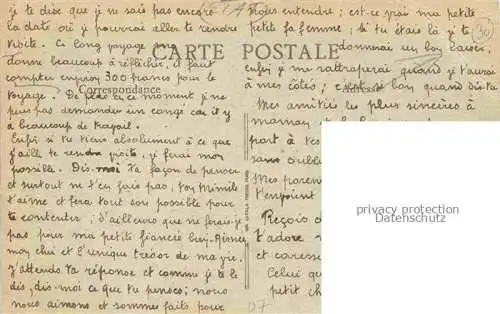 je te dise que je ne sais pas encore
la date où je pourrai aller te rendre
visite. Ce long voyage
donne beaucoup à réfléchir, il faut
compter environ 300 francs pour le
voyage. De plus en ce moment je ne
peux pas demander un congé car il y
a beaucoup de travail.
Enfin si tu tiens absolument à ce que
j'aille te rendre visite, je ferai mon
possible. Dis-moi ta façon de penser
et surtout ne t'en fais pas, ton
t'aime et fera tout son possible pour
te contenter; d'ailleurs que ne ferais-je
pas pour ma petite fiancée bien-Aimée
moy chui et l'unique trésor de ma vie.
j'attends ta réponse et comme je te le
dis, dis-moi ce que tu penses; nous
nous aimons et sommes faits pour
CARTE POSTALE
Correspondance
Adresse
nous entendre; est-ce vrai ma petite
petite fa femme; si tu étais là je te
donnerai un bon baiser,
enfin je me rattraperai quand je t'aurai
à mes côtés; c'est si bon quand dis-tu
Mes amitiés les plus sincères à
maman et
part à tes
sans oublier
Mes parents
t'envoient
Reçois
t'adore
et caresse
Celui qui
petit
privacy protection
Datenschutz.
07